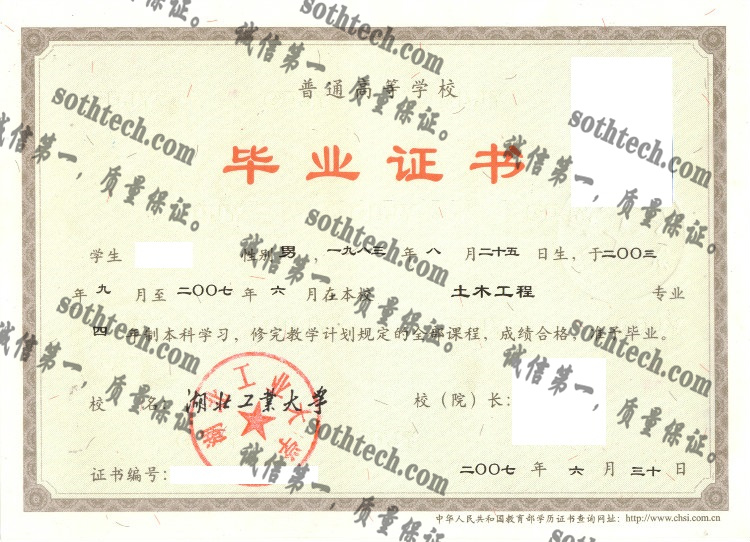 普通高等学校
毕业证书
学生 性别 男 ，一九八三 年 八 月 二十五 日生，于二〇〇三
年 九 月至 二〇〇七 年 六 月在本校 土木工程 专业
四 年制本科学习，修完教学计划规定的全部课程，成绩合格，准予毕业。
校 名：湖北工業大学 校（院）长：
湖北工业大学
证书编号： 二〇〇七 年 六 月 三十 日
中华人民共和国教育部学历证书查询网址：http://www.chsi.com.cn
sothtech.com
诚信第一，质量保证。
sothtech.com
诚信第一，质量保证。
sothtech.com
诚信第一，质量保证。
sothtech.com
诚信第一，质量保证。
sothtech.com
诚信第一，质量保证。
sothtech.com
诚信第一，质量保证。
sothtech.com
诚信第一，质量保证。
sothtech.com